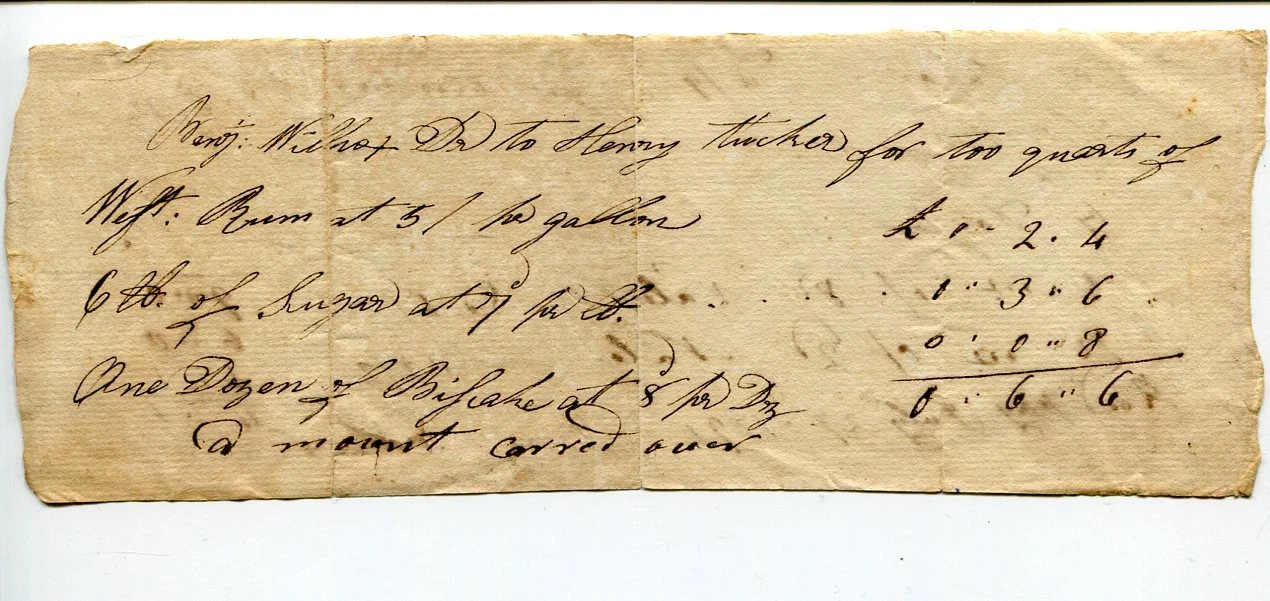 Benj: Willcox Dr to Henry tucker for too quarts of
West: Rum at 5/ pr gallon £ 0 " 2 . 4
6 lb. of Sugar at 7d pr lb. . . . . 0 " 3 " 6
0 " 0 " 8
One Dozen of Biscake at 8d pr Doz 0 " 6 " 6
a mount carred over